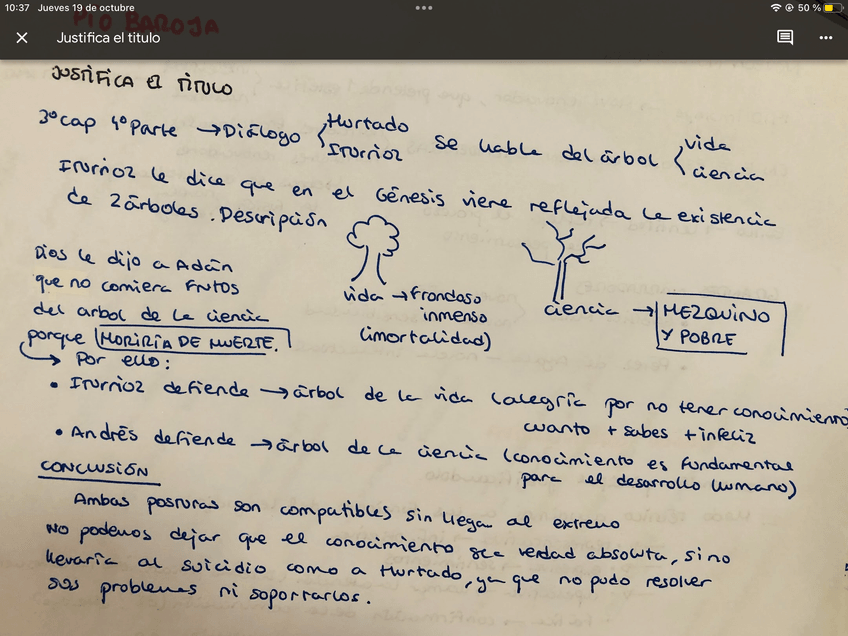 10:37 Jueves 19 de octubre
50 %
PIO BAROJA
Justifica el titulo
JUSTIFICA EL TITULO
3º cap 4º Parte → Diálogo { Hurtado Iturrioz se habla del árbol { vida ciencia
Iturrioz le dice que en el Génesis viene reflejada la existencia
de 2 árboles. Descripción
Dios le dijo a Adán
que no comiera frutos
del arbol de la ciencia
porque MORIRIA DE MUERTE.
vida → frondoso
inmenso
(imortalidad)
ciencia → MEZQUINO
Y POBRE
→ Por ello:
• Iturrioz defiende → árbol de la vida (alegría por no tener conocimiento)
cuanto + sabes + infeliz
• Andrés defiende → árbol de la ciencia (conocimiento es fundamental
para el desarrollo humano)
CONCLUSIÓN
Ambas posturas son compatibles sin llegar al extremo
No podemos dejar que el conocimiento sea verdad absoluta, si no
llevaría al suicidio como a Hurtado, ya que no pudo resolver
sus problemas ni soportarlos.